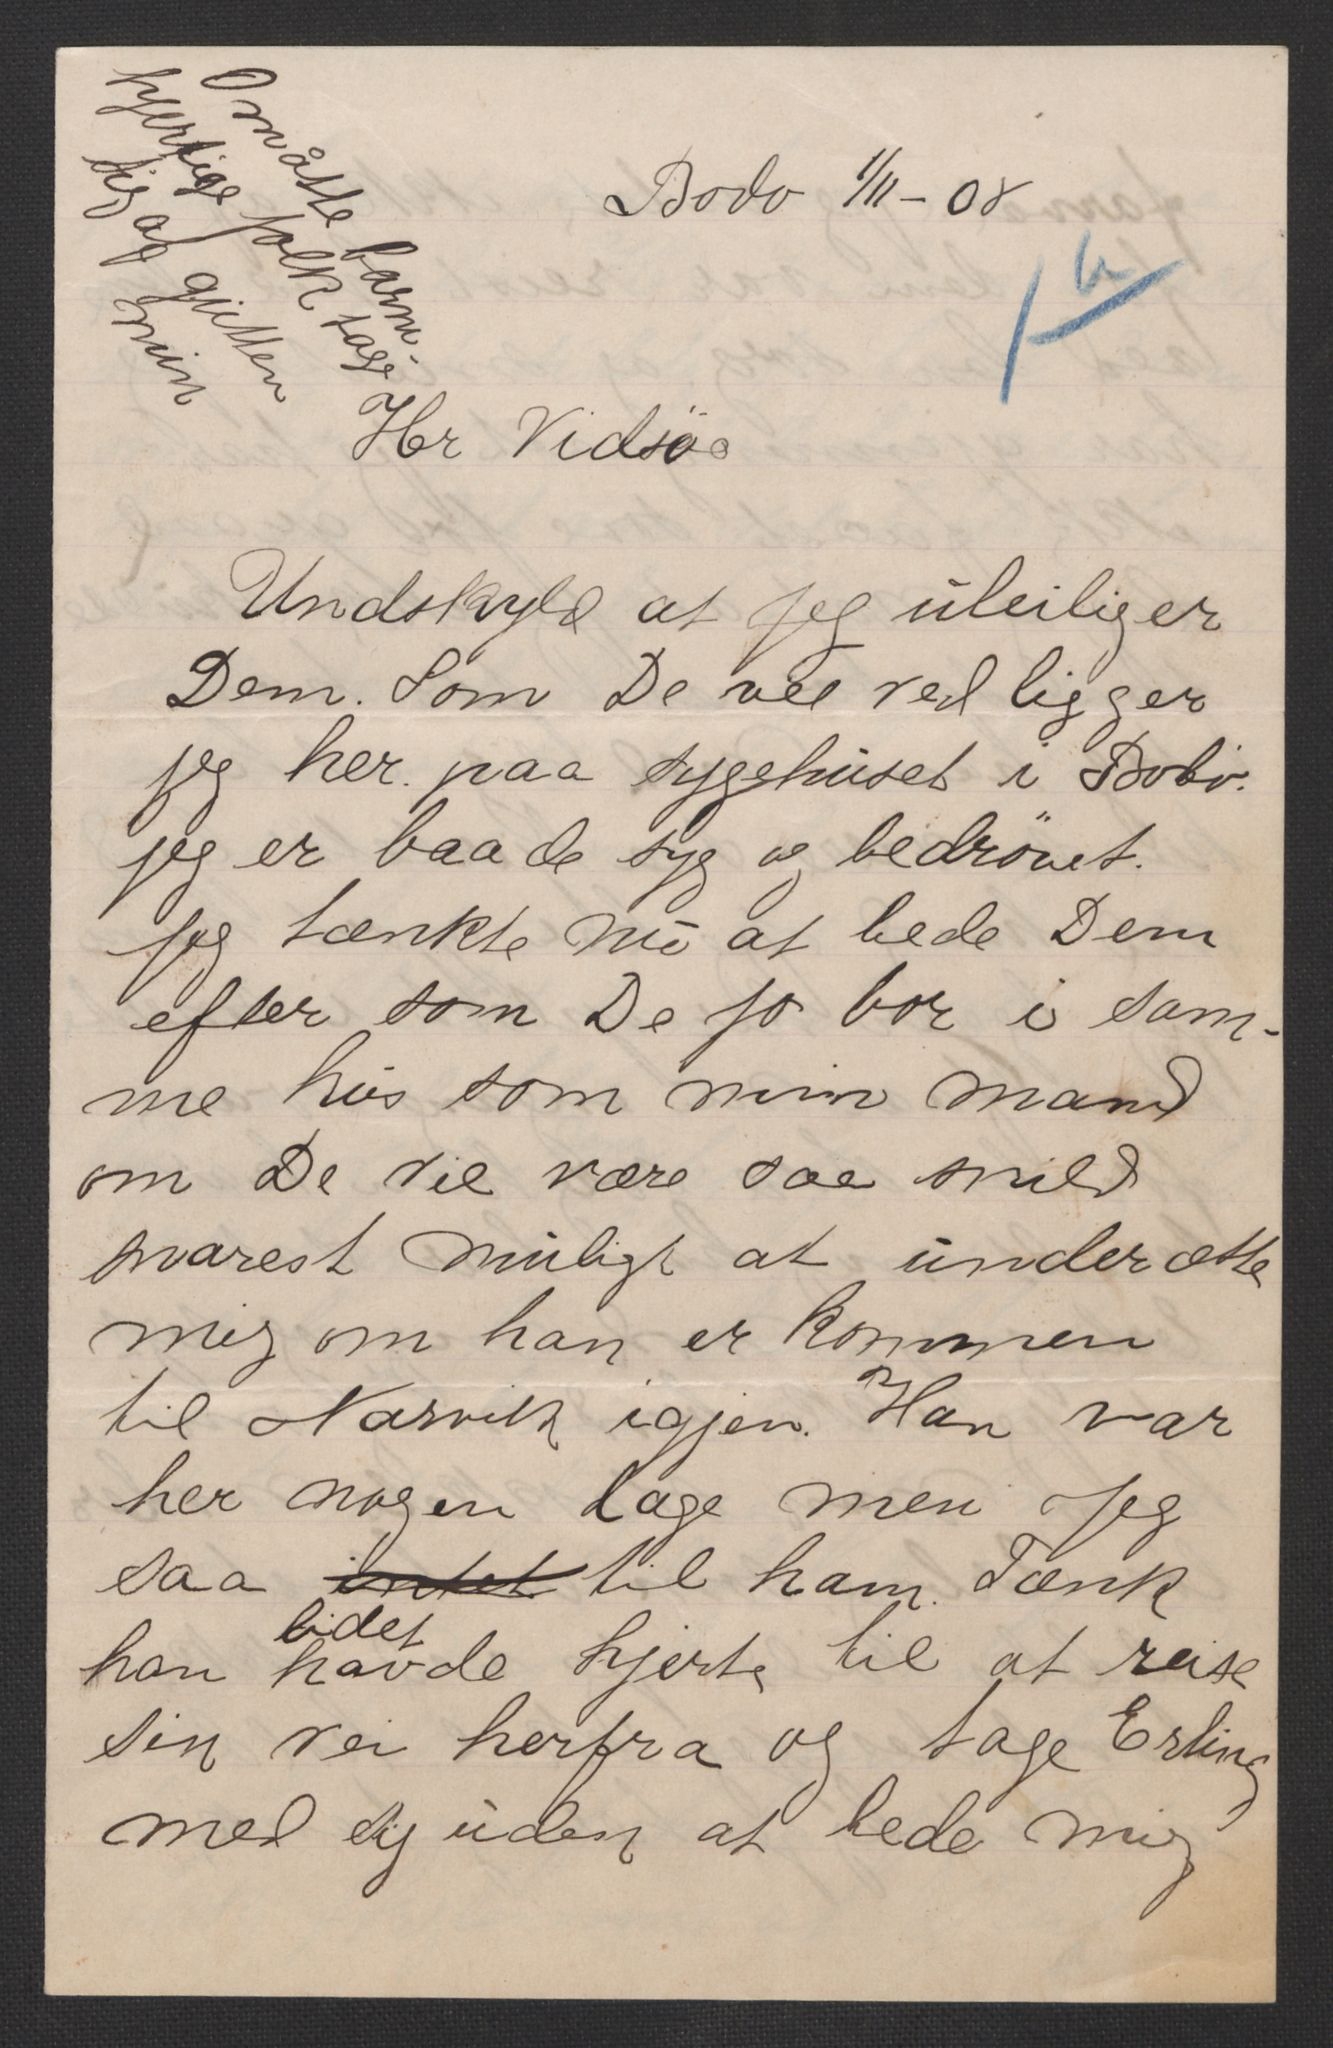 O måtte barm-
hjertige folk tage
sig af gutten
min
Bodø 1/11-08
Hr Vidsö
Undskyld at jeg uleiliger
Dem. Som De vel ved ligger
jeg her paa sygehuset i Bodø.
jeg er baade syg og bedrövet.
jeg tænkte nu at bede Dem
efter som De jo bor i sam-
me hus som min mand
om De vil være saa snild
snarest muligt at underætte
mig om han er kommen
til Narvik igjen. Han var
her nogen dage men jeg
saa intet til ham. Tænk
lidet
han havde hjerte til at reise
sin vei herfra og tage Erling
med sig uden at lede mig